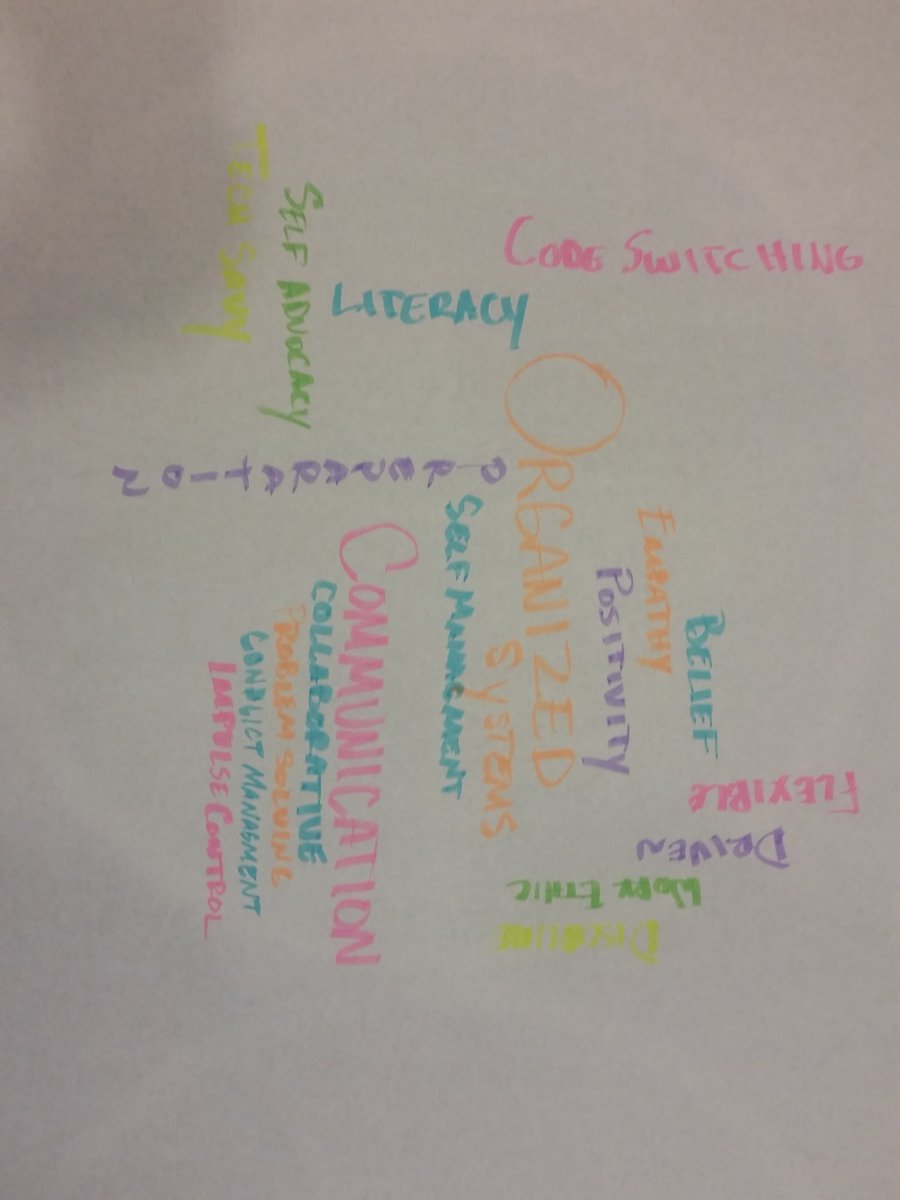 BELIEF
EMPATHY
POSITIVITY
ORGANIZED
SYSTEMS
SELF MANAGEMENT
COMMUNICATION
COLLABORATIVE
PROBLEM SOLVING
CONFLICT MANAGMENT
IMPULSE CONTROL
PREPARATION
SELF ADVOCACY
TECH SAVY
CODE SWITCHING
LITERACY
FLEXIBLE
DRIVEN
WORK ETHIC
DISCIPLINE